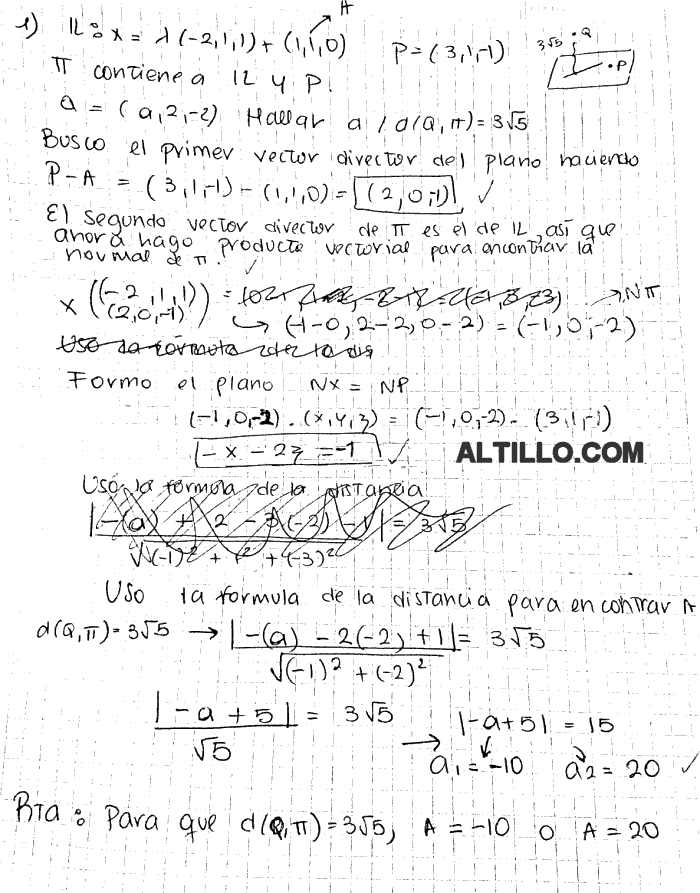 1) IL: x = λ(-2,1,1) + (1,1,0) A
P = (3,1,-1) 3√5 Q P
π contiene a IL y P.
Q = (a,2,-2) Hallar a / d(Q,π) = 3√5
Busco el primer vector director del plano haciendo
P-A = (3,1,-1) - (1,1,0) = (2,0,-1) ✓
El segundo vector director de π es el de IL, así que
ahora hago producto vectorial para encontrar la
normal de π. ✓
x ((-2,1,1)) =
(2,0,-1) → (-1-0, 2-2, 0-2) = (-1,0,-2) → Nπ
Uso la fórmula de la dis
Formo el plano Nx = NP
(-1,0,-2) . (x,y,z) = (-1,0,-2) . (3,1,-1)
-x - 2z = -1 ✓
ALTILLO.COM
Uso la fórmula de la distancia
|-(a) + 2 - 3(-2) - 1| = 3√5
√(-1)² + 1² + (-3)²
Uso la formula de la distancia para encontrar A
d(Q,π) = 3√5 → |-(a) - 2(-2) + 1| = 3√5
√(-1)² + (-2)²
|-a + 5| = 3√5
√5
→ |-a+5| = 15
a₁ = -10 a₂ = 20 ✓
RTA: Para que d(Q,π) = 3√5, A = -10 o A = 20